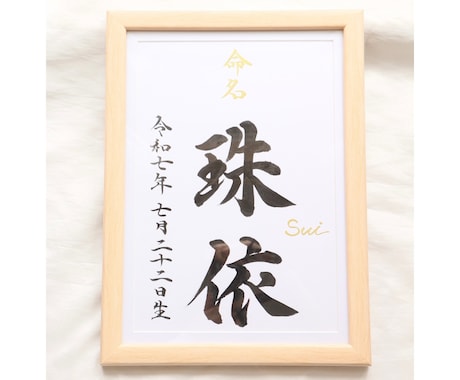 命名
珠依
Sui
令和七年 七月二十二日生